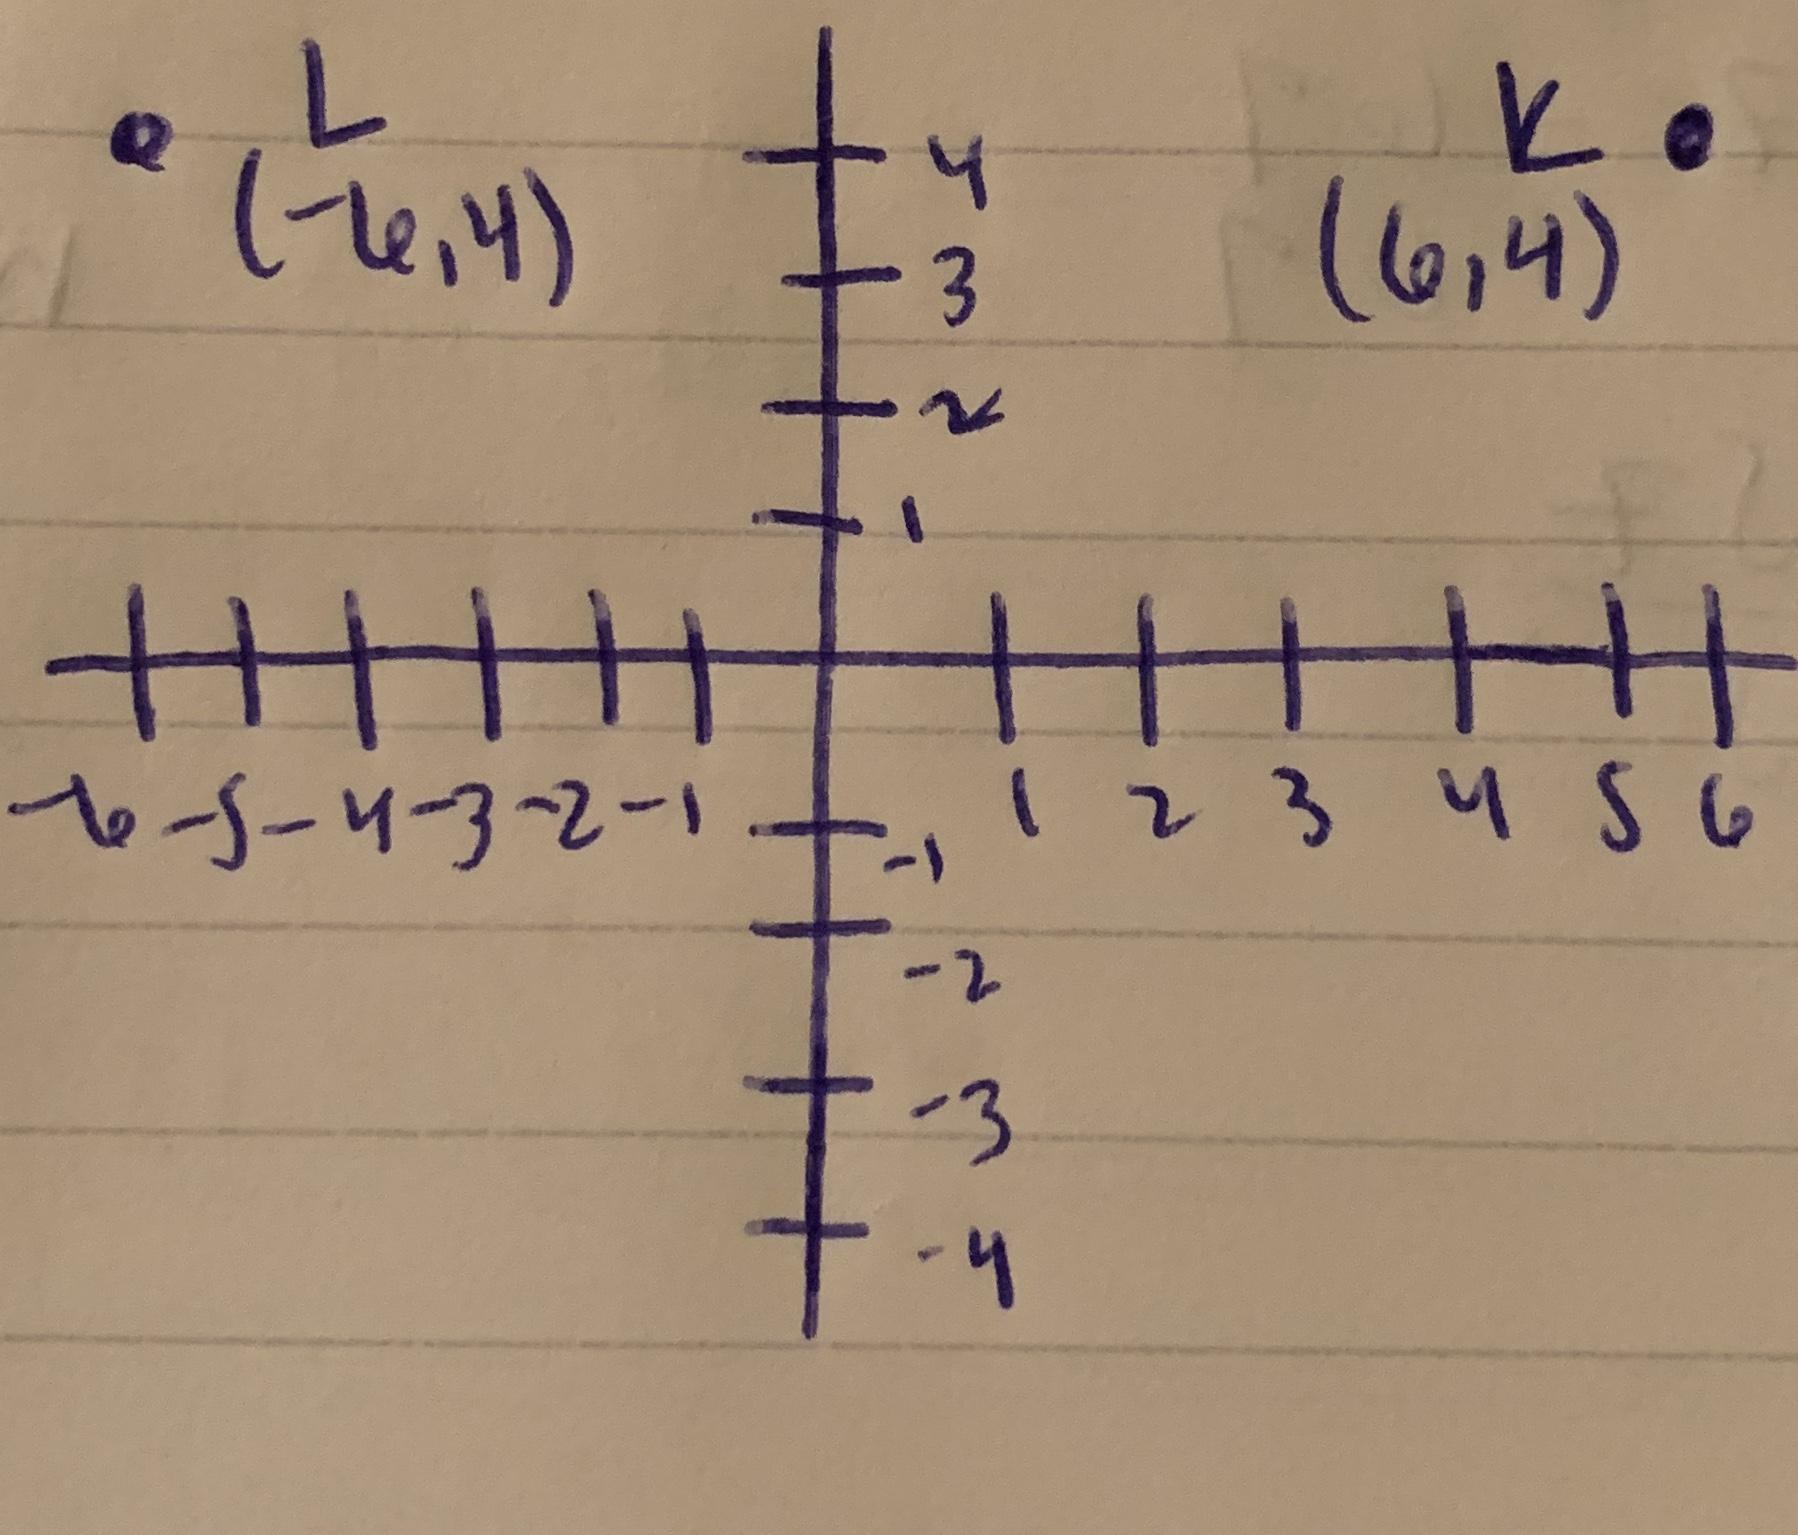 L
K
(-6,4)
(6,4)
4
3
2
1
-6 -5 -4 -3 -2 -1
1 2 3 4 5 6
-1
-2
-3
-4